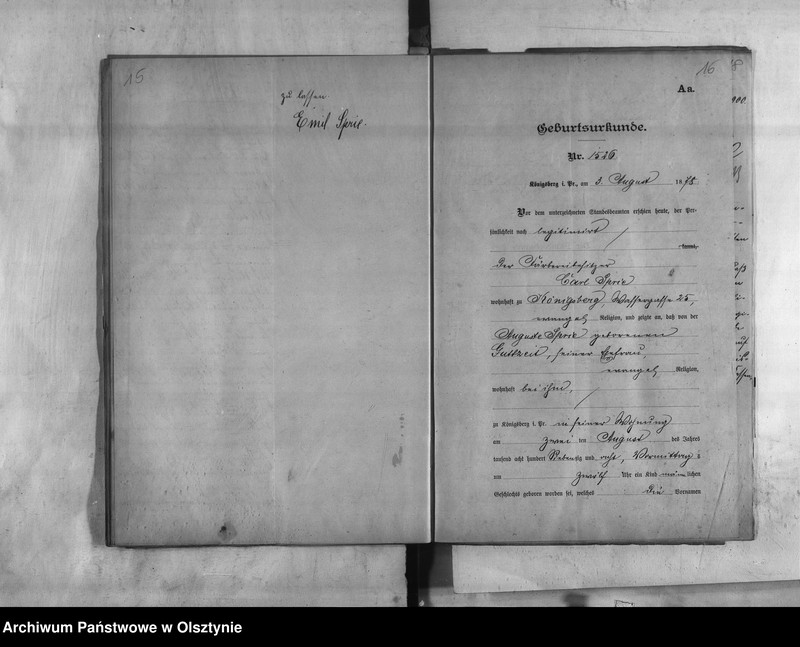 15
zu lassen.
Emil Sprie.
16
Aa.
Geburtsurkunde.
Nr. 1526
Königsberg i. Pr., am 3. August 1878
Vor dem unterzeichneten Standesbeamten erschien heute, der Per-
sönlichkeit nach legitimirt
kannt,
der Färbereibesitzer
Carl Sprie
wohnhaft zu Königsberg, Wassergasse 25,
evangel. Religion, und zeigte an, daß von der
Auguste Sprie geborenen
Guttzeit, seiner Ehefrau,
evangel. Religion,
wohnhaft bei ihm,
zu Königsberg i. Pr. in seiner Wohnung
am zwei ten August des Jahres
tausend acht hundert Siebenzig und acht, Vormittag s
um zwölf Uhr ein Kind männlichen
Geschlechts geboren worden sei, welches die Vornamen
Archiwum Państwowe w Olsztynie